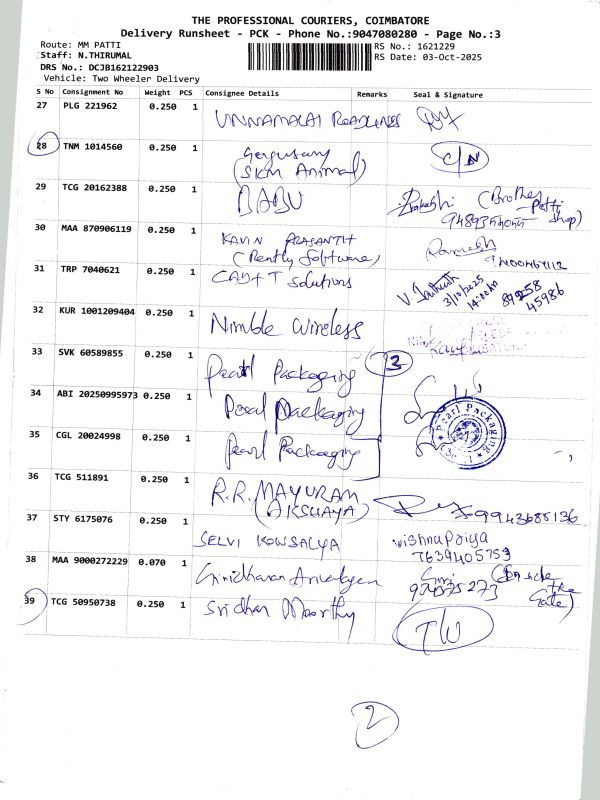 THE PROFESSIONAL COURIERS, COIMBATORE
Delivery Runsheet - PCK - Phone No.:9047080280 - Page No.:3
Route: MM PATTI
RS No.: 1621229
Staff: N.THIRUMAL
RS Date: 03-Oct-2025
DRS No.: DCJB162122903
Vehicle: Two Wheeler Delivery
S No Consignment No Weight PCS Consignee Details Remarks Seal & Signature
27 PLG 221962 0.250 1 UNNAMALAI
28 TNM 1014560 0.250 1 C/N
(SKM Animal)
29 TCG 20162388 0.250 1 BABU Prakash (Brother
Patti
shop)
30 MAA 870906119 0.250 1 KAVIN PRASANTH Ramesh
(Rently Software)
31 TRP 7040621 0.250 1 CADIT Solutions
3/10/2025
14:00
89258
45986
32 KUR 1001209404 0.250 1 Nimble Wireless
33 SVK 60589855 0.250 1 Pearl Packaging 3
34 ABI 20250995973 0.250 1 Pearl Packaging
35 CGL 20024998 0.250 1 Pearl Packaging
Pearl Packaging
36 TCG 511891 0.250 1 R.R. MAYURAM 9943685136
(AKSHAYA)
37 STY 6175076 0.250 1 SELVI KOWSALYA vishnupriya
7639405753
38 MAA 9000272229 0.070 1 Giridharan Giri (Inside
the
Gate)
39 TCG 50950738 0.250 1 Sridhar Moorthy
2